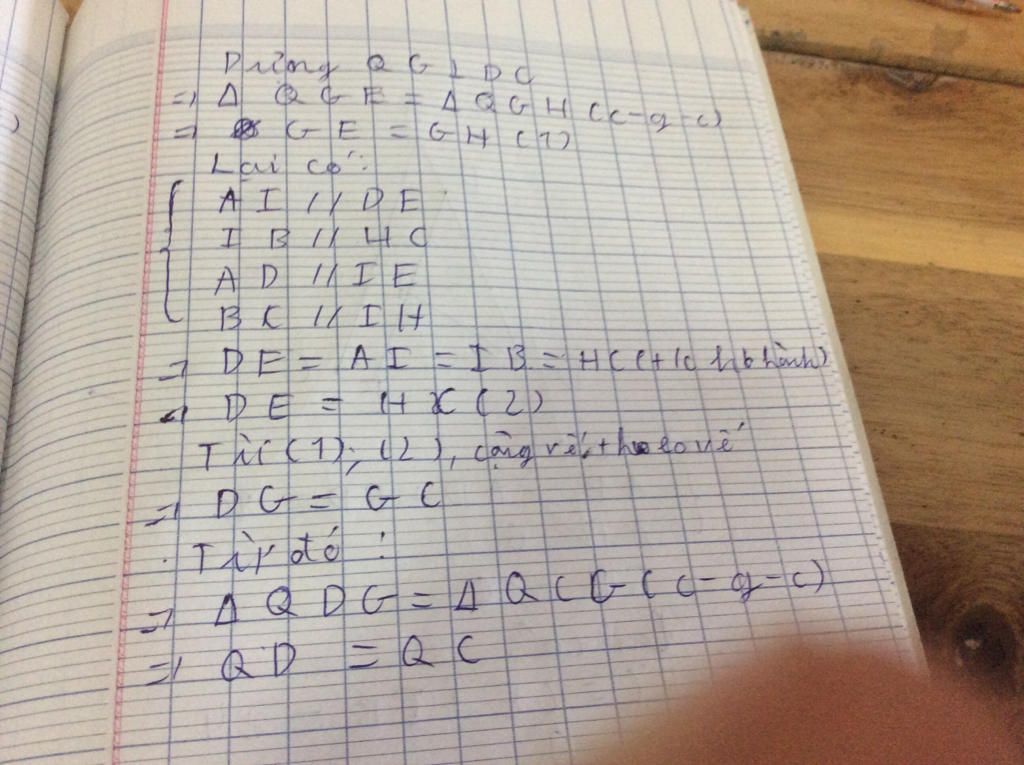 Dựng QG ⊥ DC
=> Δ QGE = Δ QGH (c-g-c)
=> GE = GH (1)
Lại có:
AI // DE
IB // HC
AD // IE
BC // IH
=> DE = AI = IB = HC (t/c hb hành)
=> DE = HC (2)
Từ (1); (2), cộng vế theo vế
=> DG = GC
Từ đó:
=> Δ QDG = Δ QCG (c-g-c)
=> QD = QC